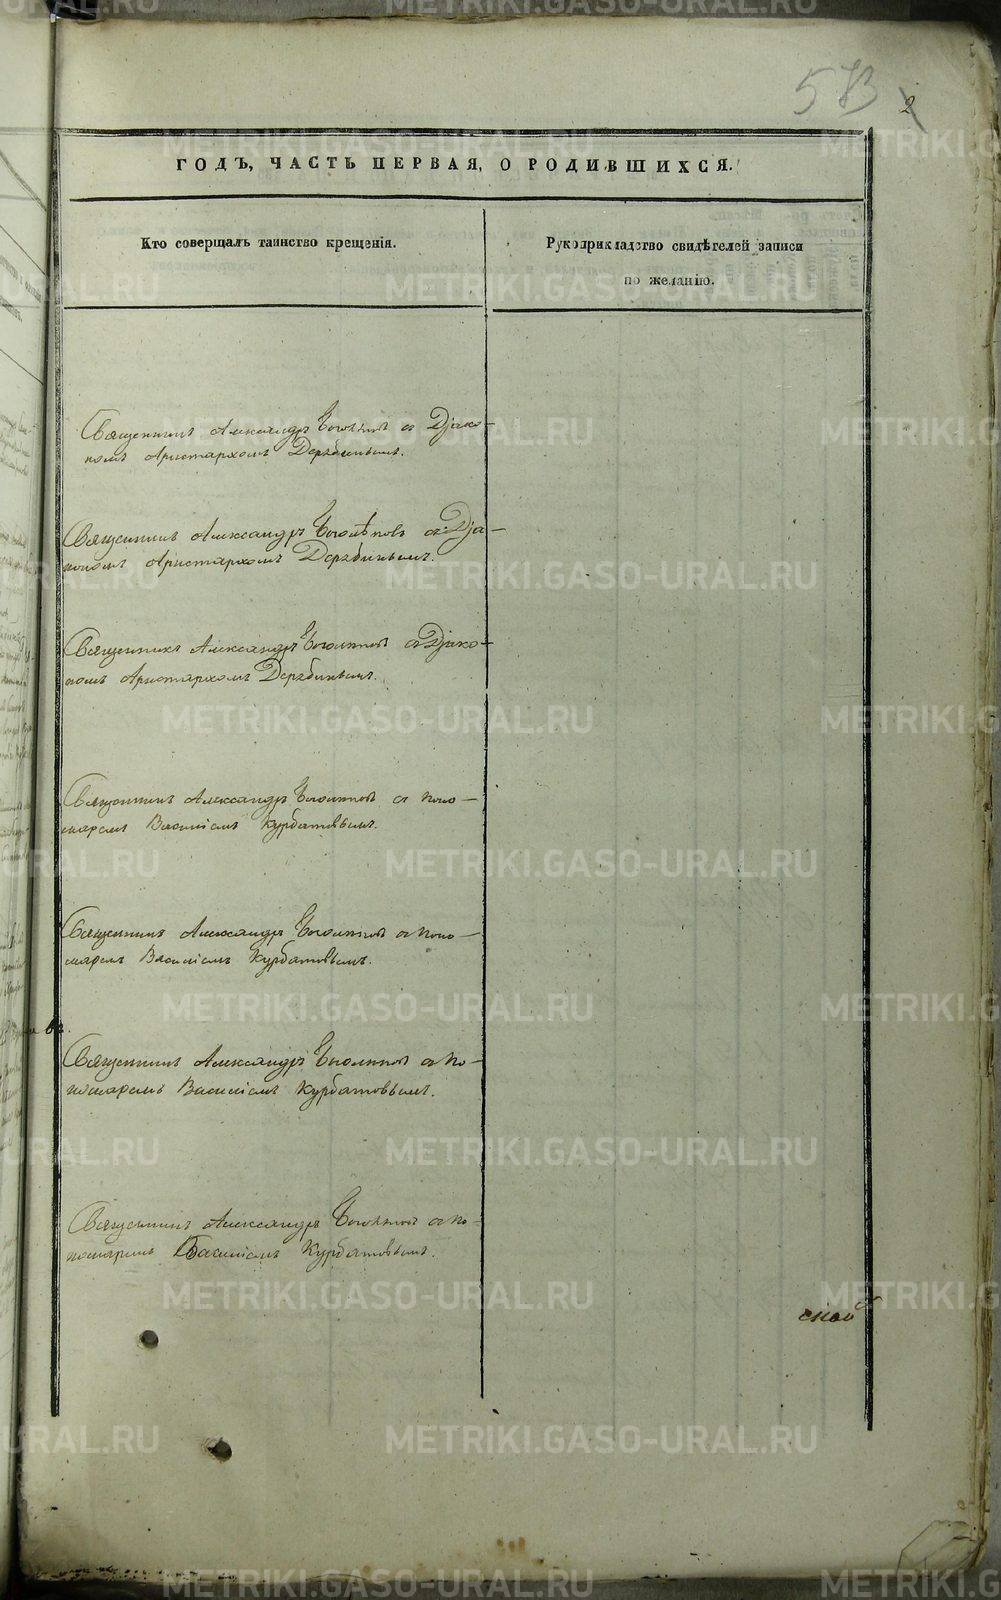 573 2
ГОДЪ, ЧАСТЬ ПЕРВАЯ, О РОДИВШИХСЯ.
Кто совершалъ таинство крещенія.
Рукоприкладство свидѣтелей записи
по желанію.
Священникъ Александръ съ Діако-
номъ Аристархомъ Дерябинымъ.
Священникъ Александръ съ Діа-
кономъ Аристархомъ Дерябинымъ.
Священникъ Александръ съ Діако-
номъ Аристархомъ Дерябинымъ.
Священникъ Александръ съ Поно-
маремъ Василіемъ Курбатовымъ.
Священникъ Александръ съ Поно-
маремъ Василіемъ Курбатовымъ.
Священникъ Александръ съ По-
номаремъ Василіемъ Курбатовымъ.
Священникъ Александръ съ По-
номаремъ Василіемъ Курбатовымъ.
ской
METRIKI.GASO-URAL.RU